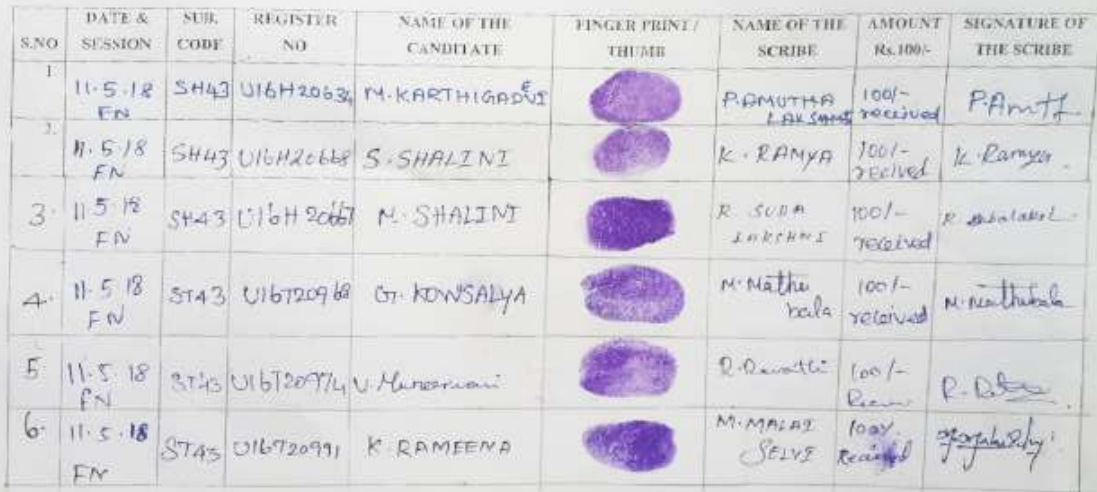 S.NO DATE & SESSION SUB. CODE REGISTER NO NAME OF THE CANDITATE FINGER PRINT / THUMB NAME OF THE SCRIBE AMOUNT Rs.100/- SIGNATURE OF THE SCRIBE
1. 11.5.18 FN SH43 U16H20634 M.KARTHIGADEVI P.AMUTHA LAKSHMI 100/- received P.Amuth
2. 11.5.18 FN SH43 U16H20668 S.SHALINI K.RAMYA 100/- recived K.Ramya.
3. 11 5 18 FN SH43 U16H20667 M.SHALINI R SUBA LAKSHMI 100/- received
4. 11.5.18 FN ST43 U16T20968 G.KOWSALYA M.Mathi bala 100/- received M.Mathibala
5 11.5.18 FN ST43 U16T20974 V. R.Revathi 100/- R.
6. 11.5.18 FN ST43 U16T20991 K.RAMEENA M.MALAI SELVI 100/. Received